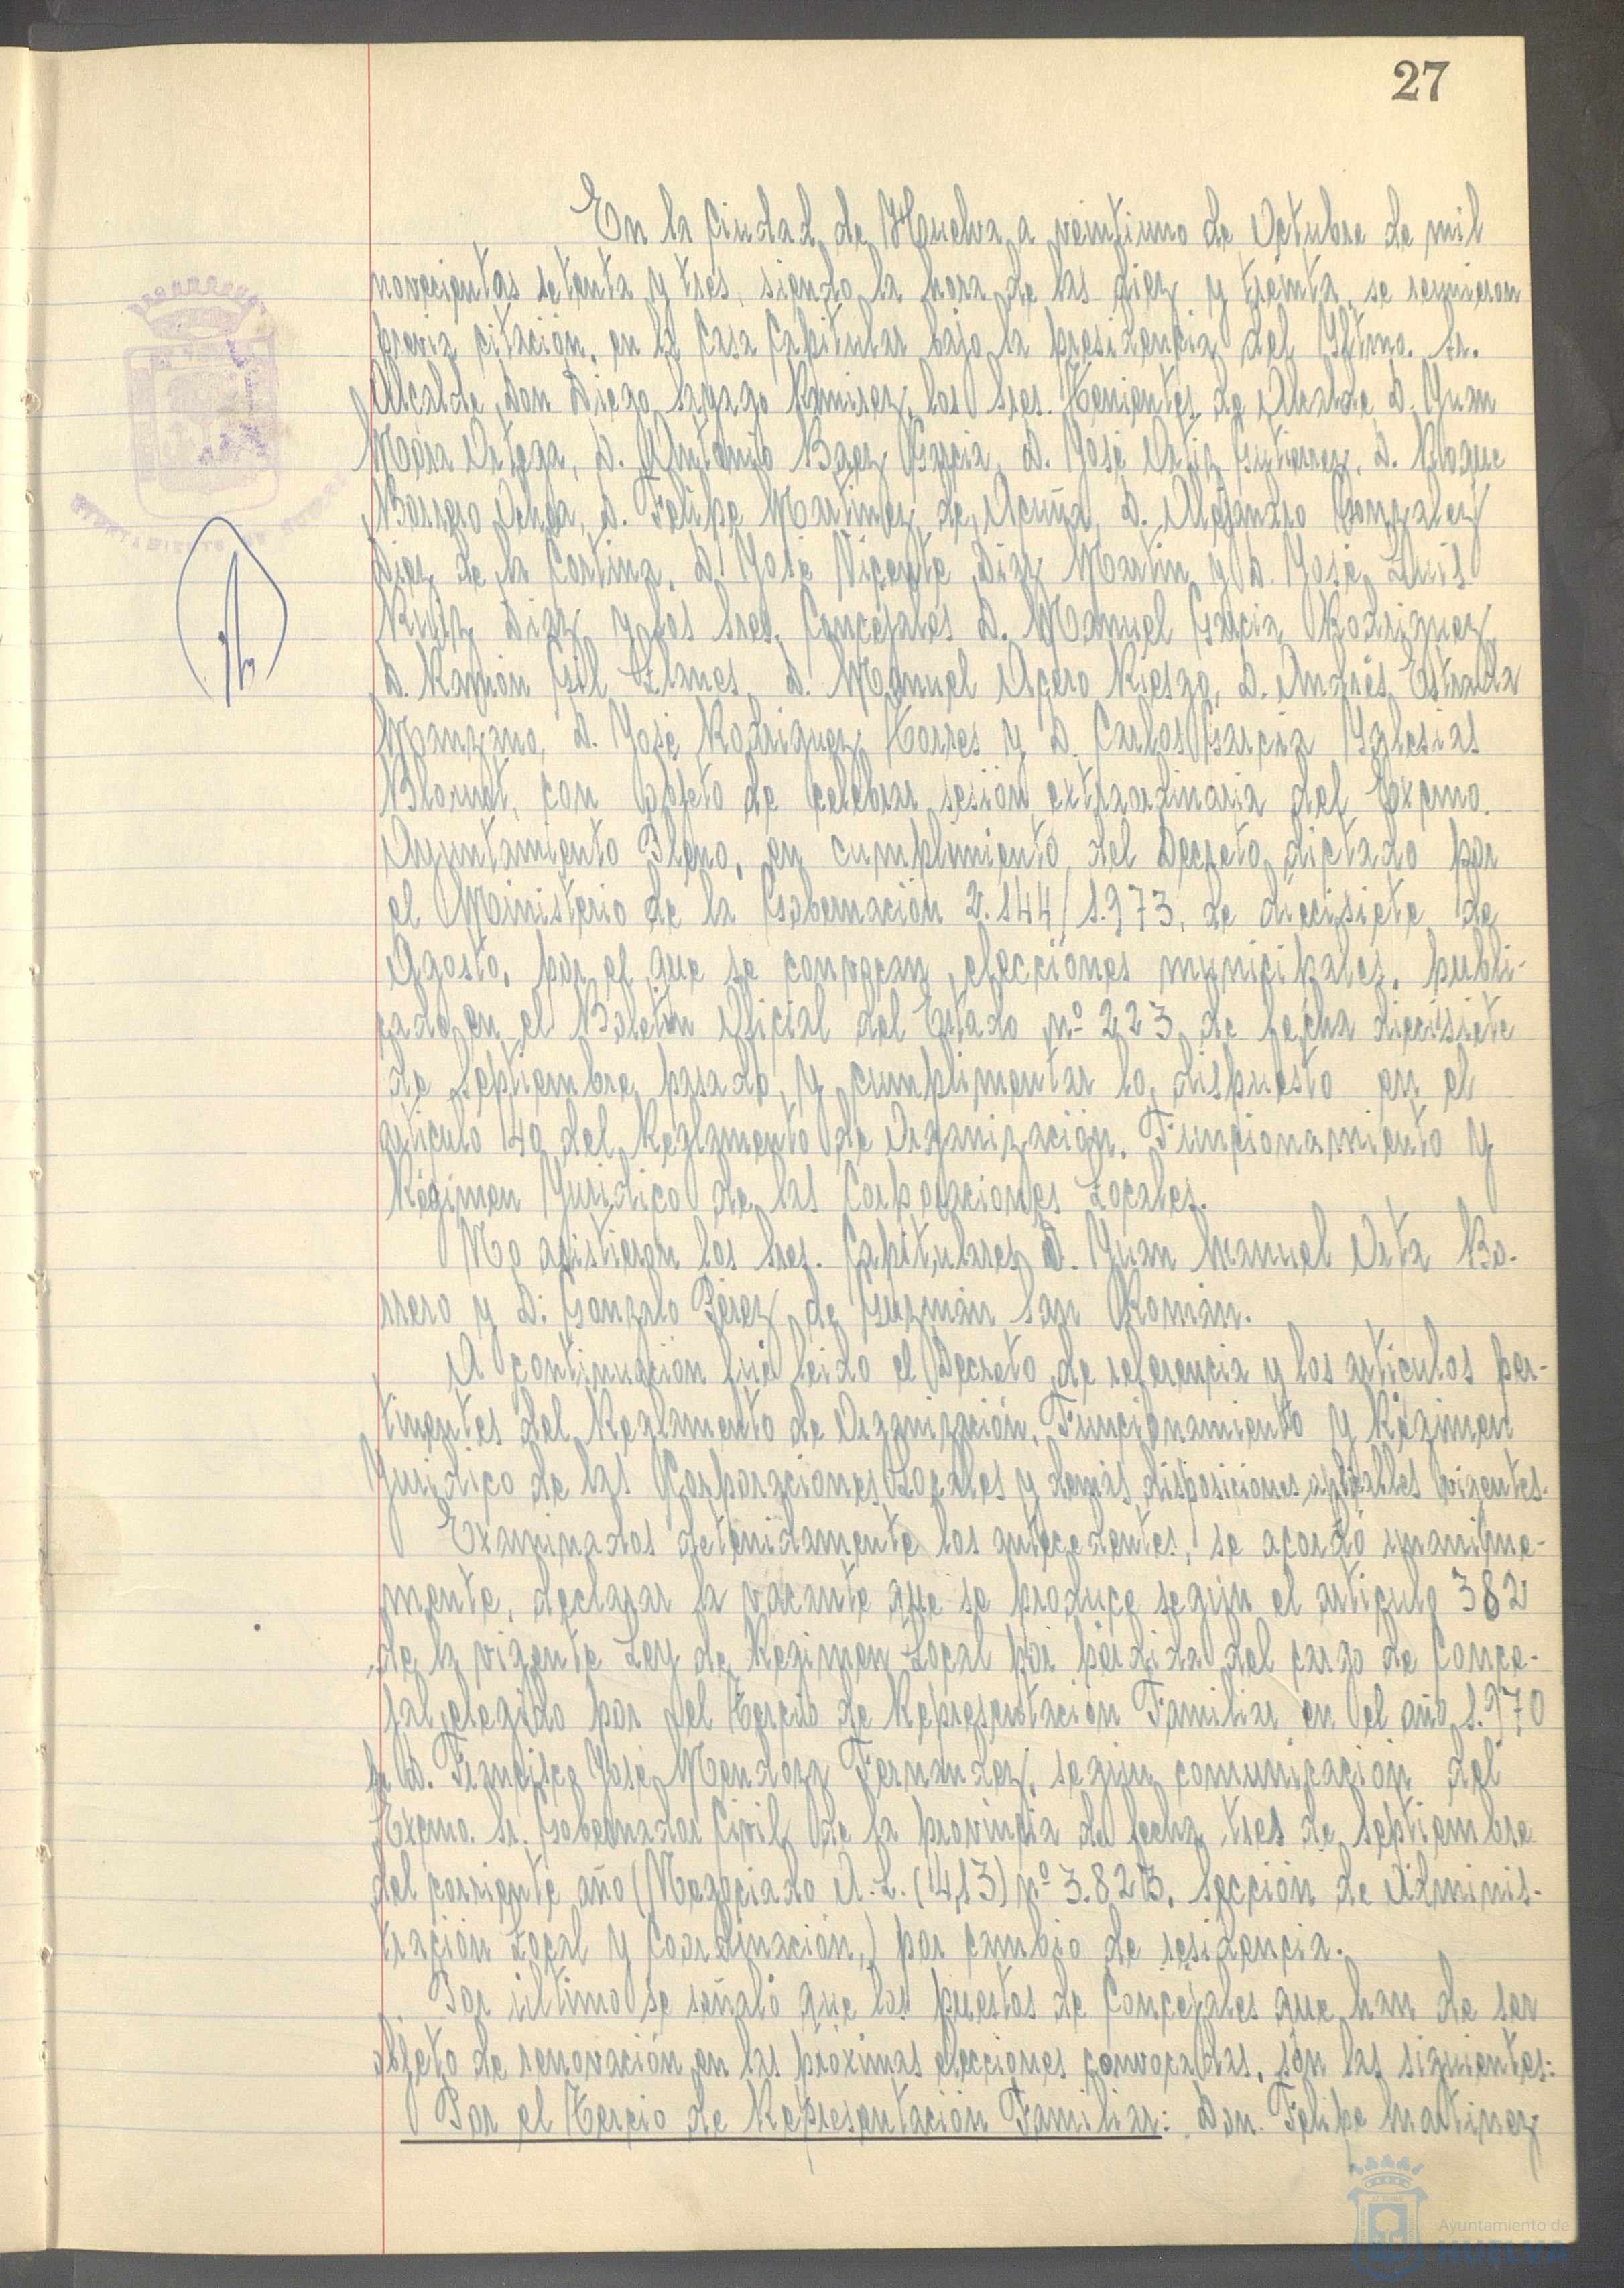 27
En la Ciudad de Huelva a veintiuno de Octubre de mil
novecientos setenta y tres, siendo la hora de las diez y treinta, se reunieron
previa citación, en la Casa Capitular bajo la presidencia del Iltmo. Sr.
Alcalde, Don Diego Sayago Ramirez, los Sres. Tenientes de Alcalde D. Juan
Mora Ortega, D. Antonio Baez Garcia, D. José Ortiz Gutierrez, D. Roque
Borrero Ochoa, D. Felipe Martinez de Acuña, D. Alejandro Gonzalez
Diez de la Cortina, D. José Vicente Diaz Martin y D. José Luis
Ruiz Diaz y los Sres. Concejales D. Manuel Garcia Rodriguez
D. Ramón Gil Llanes, D. Manuel Acero Riesgo, D. Andrés Estrada
Manzano, D. José Rodriguez Torres y D. Carlos Garcia Iglesias
con objeto de celebrar sesión extraordinaria del Excmo.
Ayuntamiento Pleno, en cumplimiento del Decreto dictado por
el Ministerio de la Gobernación 2.144/1.973, de diecisiete de
Agosto, por el que se convocan elecciones municipales, publi-
cado en el Boletin Oficial del Estado nº 223 de fecha diecisiete
de Septiembre pasado y cumplimentar lo dispuesto en el
articulo 40 del Reglamento de Organización, Funcionamiento y
Régimen Juridico de las Corporaciones Locales.
No asistieron los Sres. Capitulares D. Juan Manuel Orta Bo-
rrero y D. Gonzalo Pérez de Guzmán San Román.
A continuación fué leido el Decreto de referencia y los articulos per-
tinentes del Reglamento de Organización, Funcionamiento y Régimen
Juridico de las Corporaciones Locales y demás disposiciones aplicables vigentes.
Examinados detenidamente los antecedentes, se acordó unanime-
mente, declarar la vacante que se produce según el articulo 382
de la vigente Ley de Regimen Local por pérdida del cargo de Conce-
jal elegido por el Tercio de Representación Familiar en el año 1.970
de D. Francisco José Mendoza Fernandez, según comunicación del
Excmo. Sr. Gobernador Civil de la provincia de fecha tres de Septiembre
del corriente año (Negociado A.L. (4,13) nº 3.823, Sección de Adminis-
tración Local y Coordinación,) por cambio de residencia.
Por último se señaló que los puestos de Concejales que han de ser
objeto de renovación en las próximas elecciones convocadas, són las siguientes:
Por el Tercio de Representación Familiar: Don. Felipe Martinez
Ayuntamiento de
HUELVA